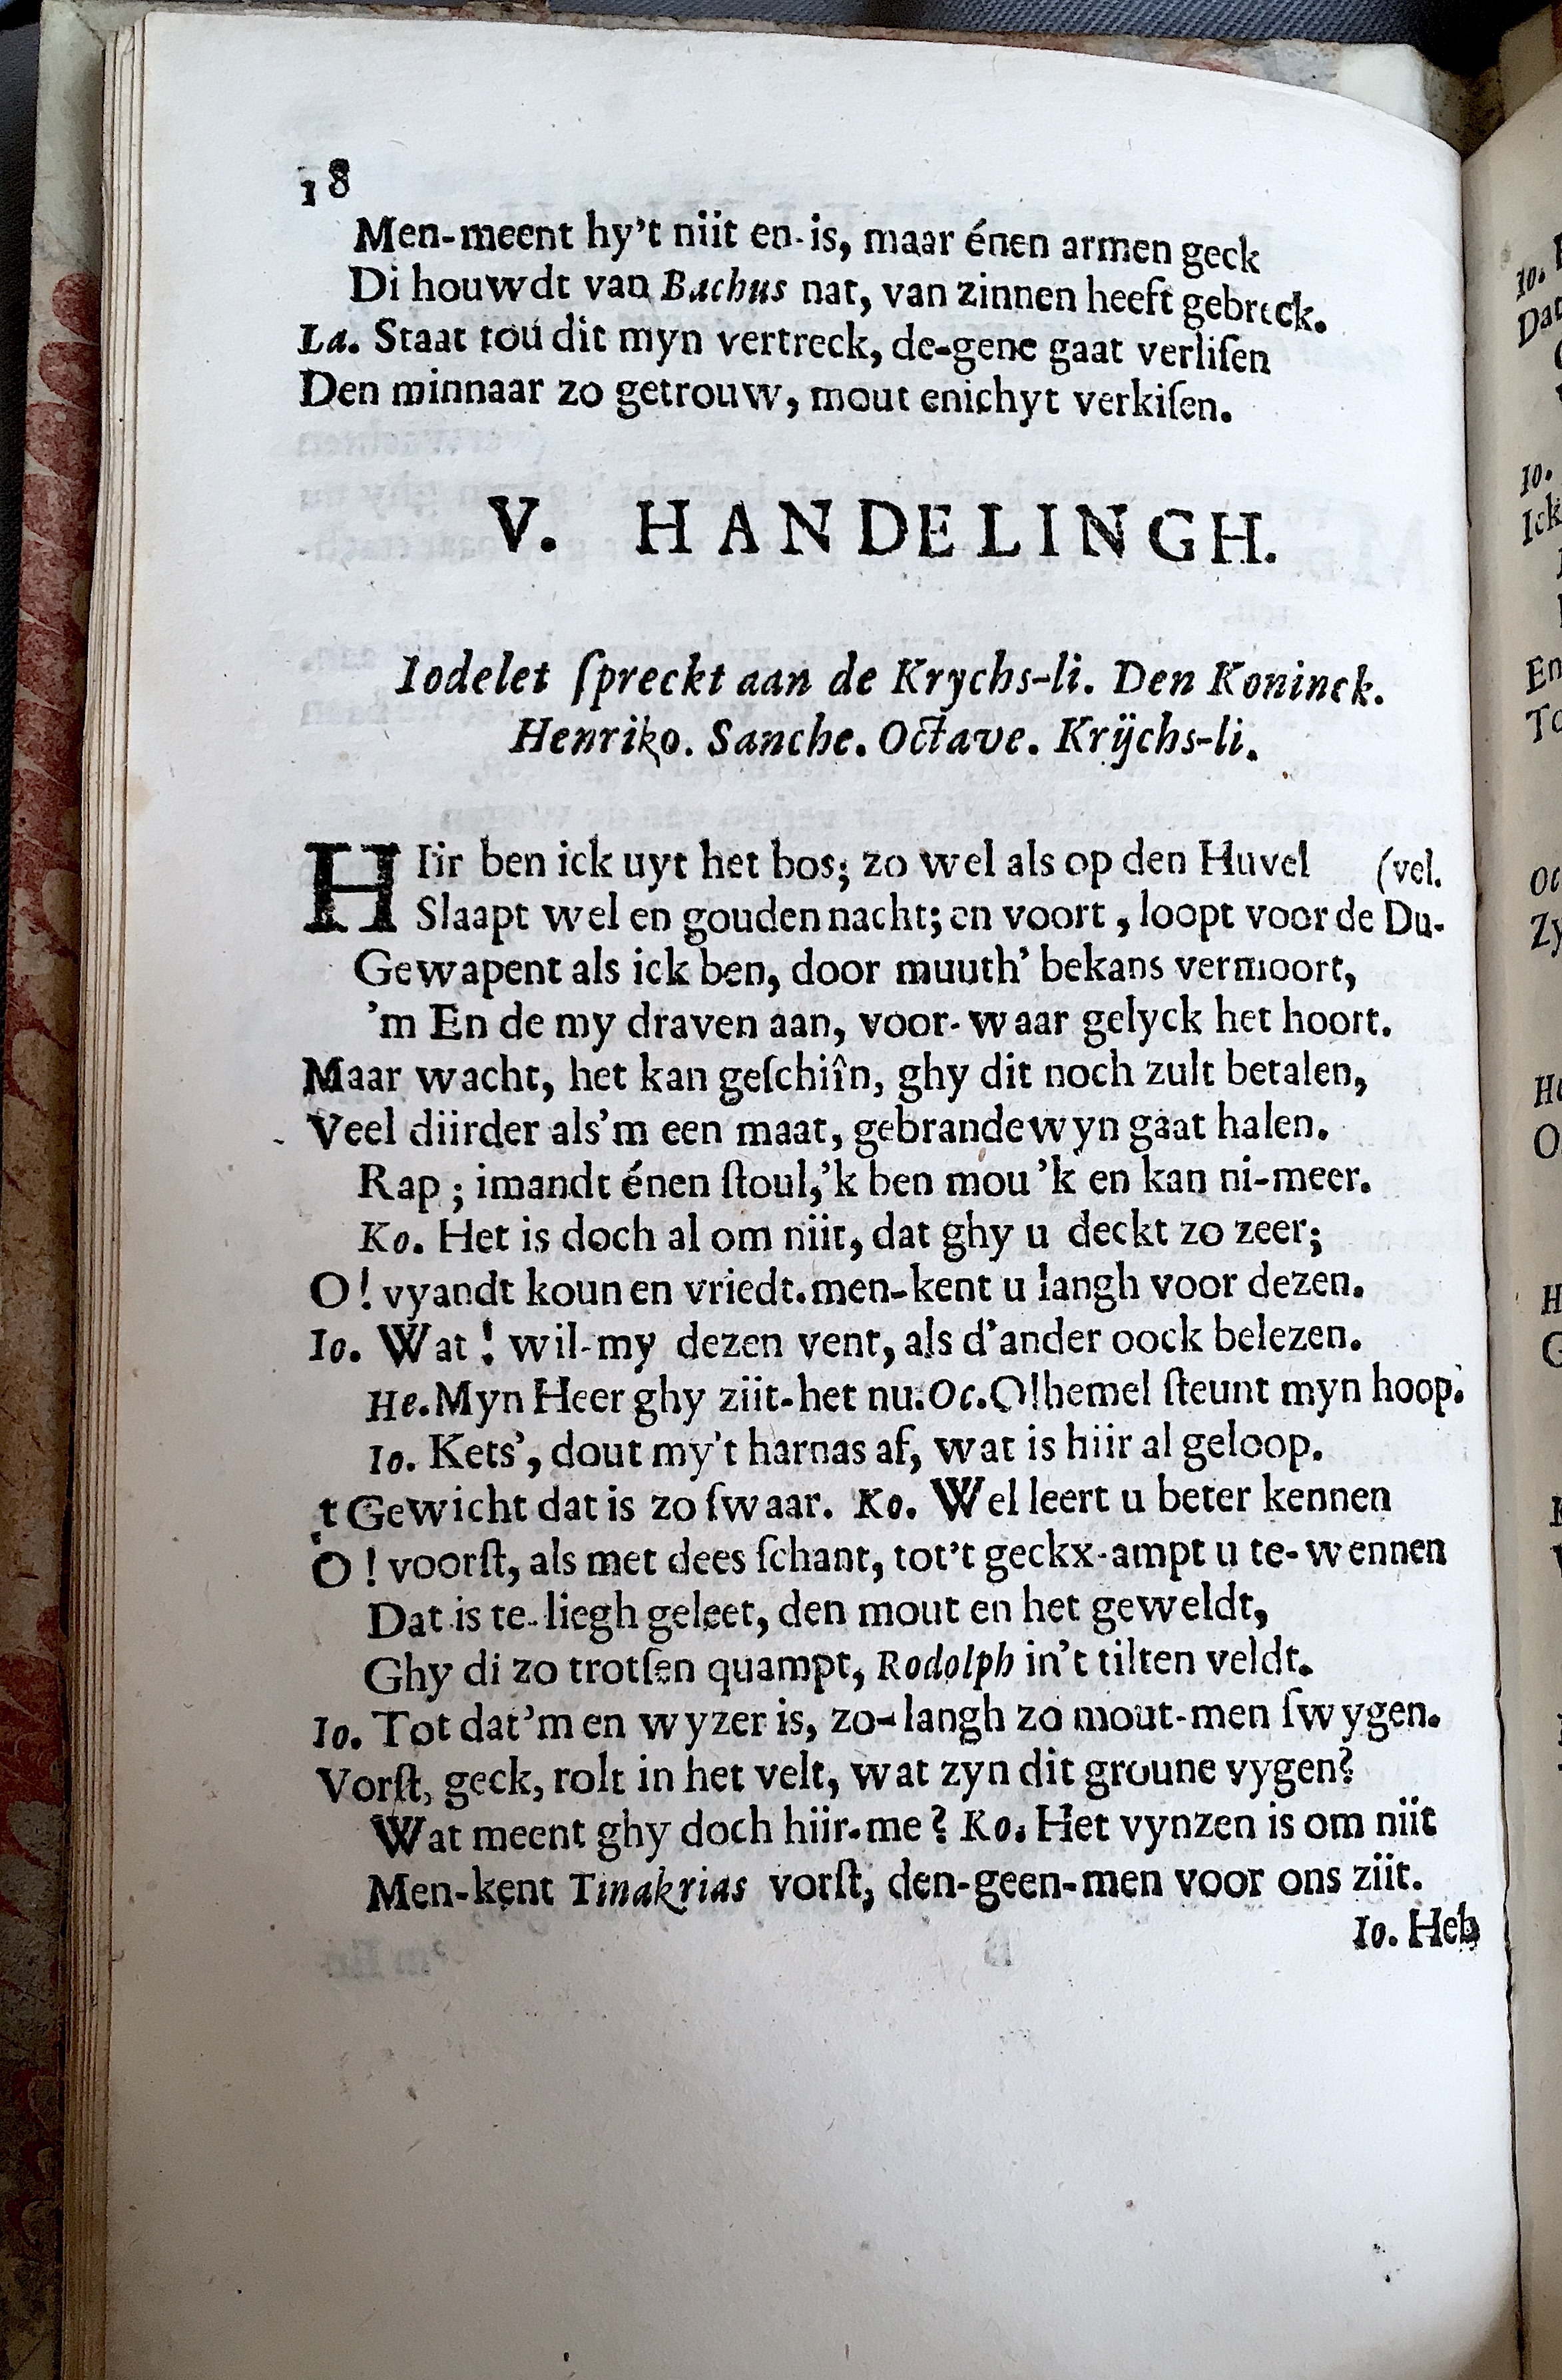 18
Men-meent hy't niit en-is, maar énen armen geck
Di houwdt van Bachus nat, van zinnen heeft gebreck.
La. Staat tou dit myn vertreck, de-gene gaat verliſen
Den minnaar zo getrouw, mout enichyt verkiſen.
V. HANDELINGH.
Iodelet ſpreckt aan de Krychs-li. Den Koninck.
Henriko. Sanche. Octave. Krÿchs-li.
HIir ben ick uyt het bos; zo wel als op den Huvel (vel.
Slaapt wel en gouden nacht; en voort, loopt voor de Du-
Gewapent als ick ben, door muuth' bekans vermoort,
'm En de my draven aan, voor-waar gelyck het hoort.
Maar wacht, het kan geſchiîn, ghy dit noch zult betalen,
Veel diirder als'm een maat, gebrandewyn gaat halen.
Rap; imandt énen ſtoul,'k ben mou 'k en kan ni-meer.
Ko. Het is doch al om niit, dat ghy u deckt zo zeer;
O! vyandt koun en vriedt.men-kent u langh voor dezen.
Io. Wat! wil-my dezen vent, als d'ander oock belezen.
He.Myn Heer ghy ziit-het nu.Oc.O!hemel ſteunt myn hoop.
Io. Kets', dout my't harnas af, wat is hiir al geloop.
't Gewicht dat is zo ſwaar. Ko. Wel leert u beter kennen
O! voorſt, als met dees ſchant, tot't geckx-ampt u te-wennen
Dat is te-liegh geleet, den mout en het geweldt,
Ghy di zo trotſen quampt, Rodolph in't tilten veldt.
Io. Tot dat'm en wyzer is, zo-langh zo mout-men ſwygen.
Vorſt, geck, rolt in het velt, wat zyn dit groune vygen?
Wat meent ghy doch hiir-me? Ko. Het vynzen is om niit
Men-kent Tinakrias vorſt, den-geen-men voor ons ziit.
Io. Heb